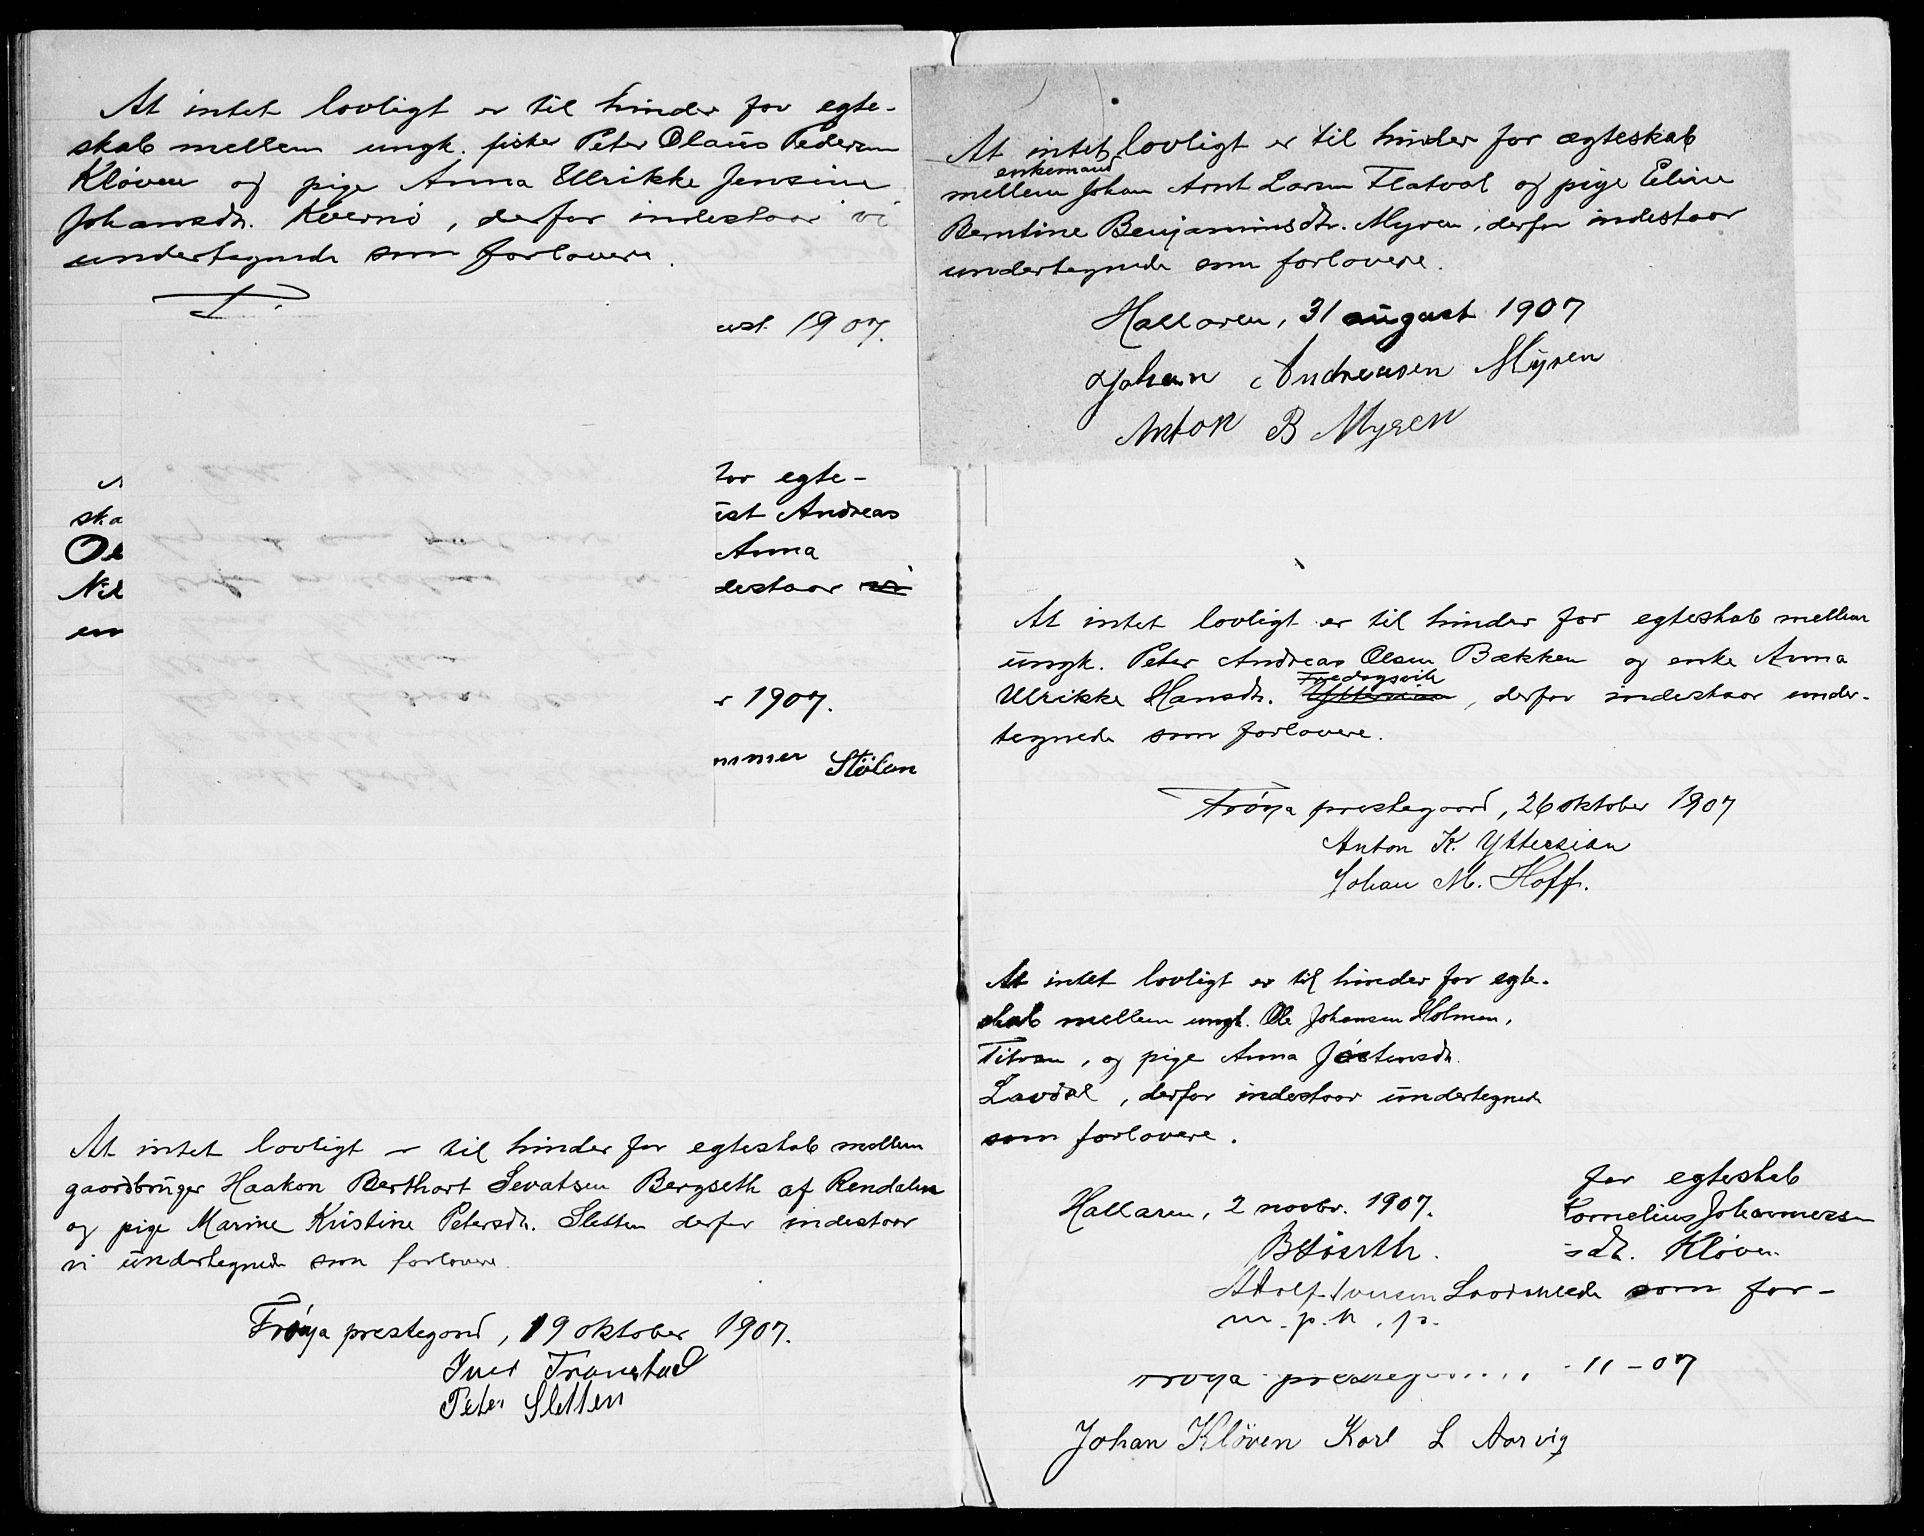 At intet lovligt er til hinder for egte-
skab mellem ungk. fisker Peter Olaus Pedersen
Kløven og pige Anna Ulrikke Jensine
Johansdtr. Kvernö, derfor indestaar vi
undertegnede som forlovere.
ust 1907.
for egte-
ska ust Andreas
Ol Anna
Nil destaar vi
un
r 1907.
mmer Stölan
At intet lovligt er til hinder for egteskab mellem
gaardbruger Haakon Berthart Sevatsen Bergseth af Rendalen
og pige Marine Kristine Petersdtr. Sletten derfor indestaar
vi undertegnede som forlovere.
Frøya prestegard, 19 oktober 1907.
Iver Tranestad
Peter Sletten
At intet lovligt er til hinder for ægteskab
enkemand
mellem Johan Arnt Larsen Flatval og pige Eline
Berntine Benjaminsdtr. Myren, derfor indestaar
undertegnede som forlovere.
Hallaren, 31 august 1907
Johan Andreasen Myren
Anton B Myren
At intet lovligt er til hinder for egteskab mellem
ungk. Peter Andreas Olsen Bækken og enke Anna
Ulrikke Hansdtr. Yttersian, derfor indestaar under-
tegnede som forlovere.
Frøya prestegaard, 26 oktober 1907
Anton K. Yttersian
Johan M. Hoff.
At intet lovligt er til hinder for egte-
skab mellem ungk. Ole Johansen Holmen,
Titran, og pige Anna Jöstensdtr.
Lavdal, derfor indestaar undertegnede
som forlovere.
Hallaren, 2 novbr. 1907.
Adolf Iversen
m. p. p.
for egteskab
Cornelius Johannessen
sdtr. Kløven
som for-
Frøya 11-07
Johan Kløven Karl L Aarvig